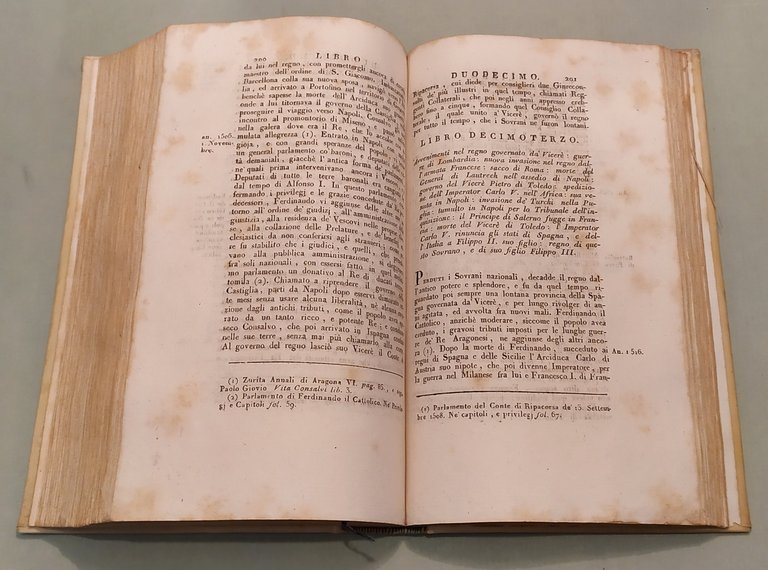 200 LIBRO
da lui nel regno, con promettergli ancora di
maestro dell'ordine di S. Giacomo.
Barcellona colla sua nuova sposa, navigò
lia, ed arrivato a Portofino nel territorio di
benchè sapesse la morte dell'Arciduca
onde a lui ritornava il governo della Castiglia
proseguire il viaggio verso Napoli.
incontro al promontorio di Miseno, e passò
nella galera dove era il Re, che lo
An. 1506. mulata allegrezza (1). Entrato in Napoli con
1 Novem- gioja, e con grandi speranze del popolo,
bre. un general parlamento co' baroni, e deputati
tà demaniali, giacchè l'antica forma de'
ne' quali prima intervenivano ancora i
Deputati di tutte le terre baronali era
dal tempo di Alfonso I. In questo parlamento
fermando i privilegj e le grazie concedute da'
decessori, Ferdinando vi aggiunse delle altre
torno all'ordine de' giudizj, all'amministrazione
giustizia, alla residenza de' Vescovi nelle proprie
se, alla collazione delle Prelature, e de'
clesiastici da non conferirsi agli stranieri,
re fu stabilito che i giudici, e quelli, che
alla pubblica amministrazione, si eleggessero
fra' soli nazionali, con essersi fatto in quel
mo parlamento un donativo al Re di ducati
tomila (2). Chiamato a riprendere il governo della
Castiglia, partì da Napoli dopo esservi dimorato
te mesi senza usare alcuna liberalità, nè alcuna
zione dagli antichi tributi, come il popolo
rato da un tanto ricco, e potente Re; e
seco Consalvo, che poi arrivato in Ispagna
nelle sue terre, senza mai più chiamarlo alla
Al governo del regno lasciò suo Vicerè il Conte
(1) Zurita Annali di Aragona VI. pag. 85.
Paolo Giovio Vita Consalvi lib. 3.
(2) Parlamento di Ferdinando il Cattolico. Ne'
gj e Capitoli fol. 59.
DUODECIMO. 201
Ripacorsa, cui diede per consiglieri due Giurecon-
sulti de' più illustri in quel tempo, chiamati Reg-
genti Collaterali, che poi negli anni appresso creb-
bero fino a cinque, formando quel Consiglio Colla-
terale, il quale unito a' Vicerè, governò il regno
per tutto il tempo, che i Sovrani ne furon lontani.
LIBRO DECIMOTERZO.
Avvenimenti nel regno governato da' Vicerè: guer-
re di Lombardia: nuova invasione nel regno dal-
l'armata Francese: sacco di Roma: morte del
General di Lautrech nell'assedio di Napoli:
governo del Vicerè Pietro di Toledo: spedizio-
ne dell'Imperator Carlo V. nell'Africa: sua ve-
nuta in Napoli: invasione de' Turchi nella Pu-
glia: tumulto in Napoli per la Tribunale dell'in-
quisizione: il Principe di Salerno fugge in Fran-
cia: morte del Vicerè di Toledo: l'Imperator
Carlo V. rinuncia gli stati di Spagna, e del-
l'Italia a Filippo II. suo figlio: regno di que-
sto Sovrano, e di suo figlio Filippo III.
Perduti i Sovrani nazionali, decadde il regno dal-
l'antico potere e splendore, e fu da quel tempo ri-
guardato poi sempre una lontana provincia della Spa-
gna governata da' Vicerè, e per lungo rivolger di an-
ni agitata, ed avvolta fra nuovi mali. Ferdinando il
Cattolico, anzichè moderare, siccome il popolo avea
creduto, i gravosi tributi imposti per le lunghe guer-
re de' Re Aragonesi, ne aggiunse degli altri anco-
ra (1). Dopo la morte di Ferdinando, succeduto ai An. 1516.
regni di Spagna e delle Sicilie l'Arciduca Carlo di
Austria suo nipote, che poi divenne Imperatore, per
la guerra nel Milanese fra lui e Francesco I. di Fran-
(1) Parlamento del Conte di Ripacorsa de' 15. Settem-
bre 1508. Ne' capitoli, e privilegj fol. 67.